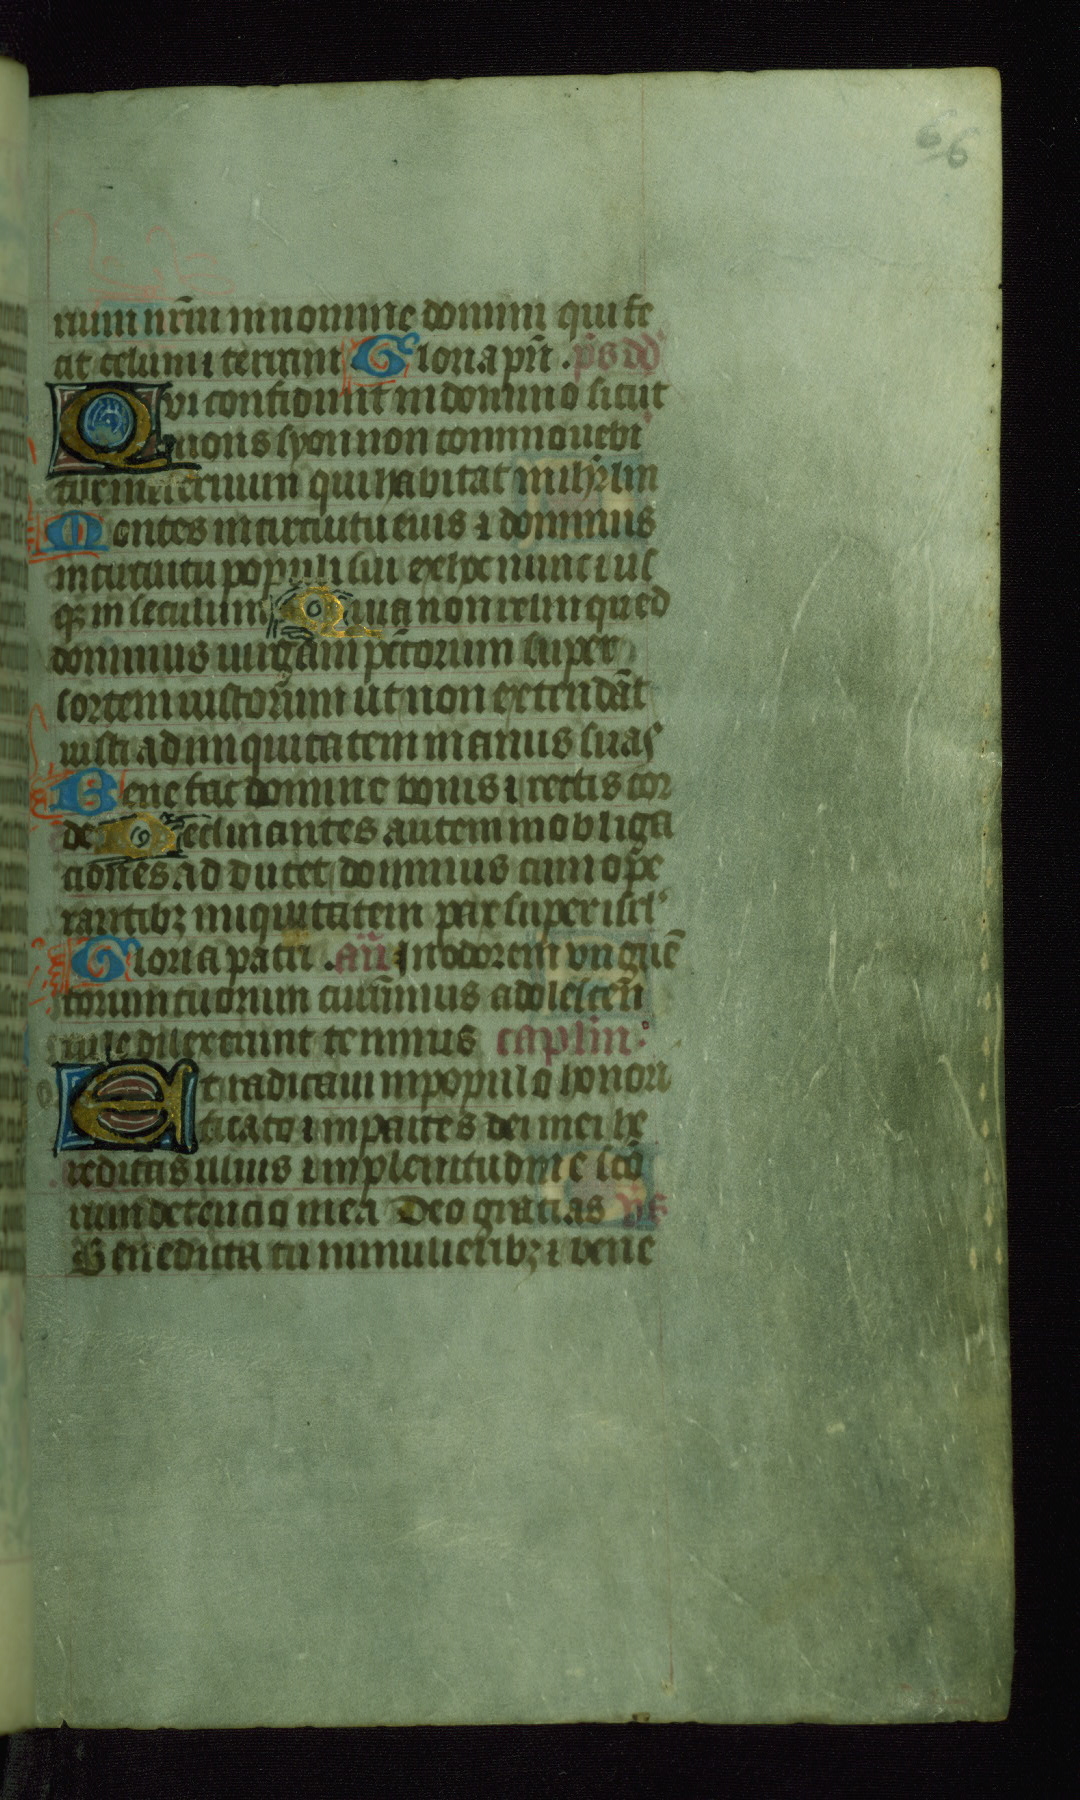 66
rium nr̄m in nomine domini qui fe
cit celum ⁊ terram Gloria pr̄i . p̄s dd̄
Qvi confidunt in domino sicut
mons syon non commouebi
tur in eternum qui habitat in ihrl̄m
Montes in circuitu euis ⁊ dominus
in circuitu populi sui ex hoc nunc ⁊ us
qꝫ in seculum Quia non relinqued
dominus uirgam pc̄torum super
sortem iustorum ut non extendāt
iusti ad iniquitatem manus suas
Bene fac domine bonis ⁊ rectis cor
de Declinantes autem in obliga
ciones ad ducet dominus cum ope
rantibꝫ iniquitatem pax super isrl'
Gloria patri . an̄ In odorem vnguē
torum tuorum currimus adolescen
tule dilexerunt te nimus capl̄m
Et radicaui in populo honori
ficato ⁊ in partes dei mei he
reditas illius ⁊ in plenitudine scō
rum detencio mea Deo gratias v̄s
Benedicta tu in mulieribꝫ ⁊ bene